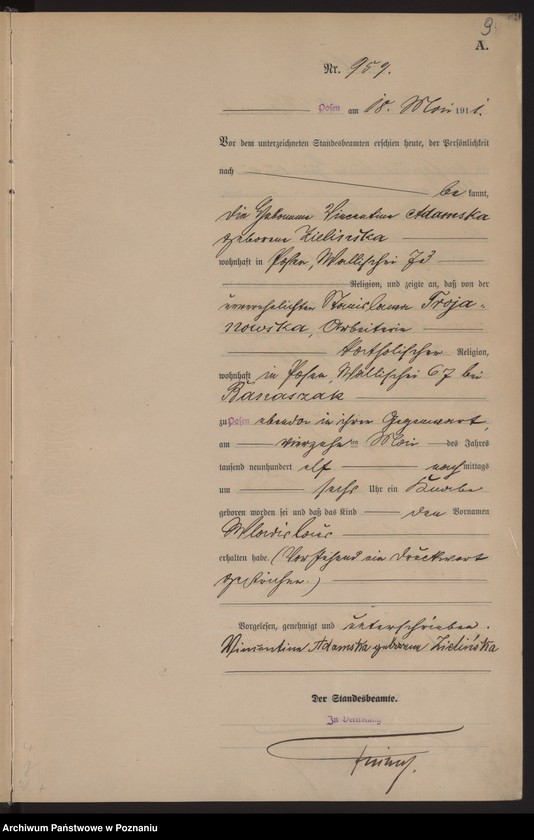 9
A.
Nr. 959.
Posen am 18. Mai 1911.
Vor dem unterzeichneten Standesbeamten erschien heute, der Persönlichkeit
nach
be kannt,
die Hebamme Vincentine Adamska
geborene Zielinska
wohnhaft in Posen, Wallischei
Religion, und zeigte an, daß von der
unverehelichten Stanislawa Troja-
nowska, Arbeiterin
katholischer Religion,
wohnhaft in Posen, Wallischei 67 bei
Banaszak
zu Posen ebenda in ihrer Gegenwart,
am vierzehnten Mai des Jahres
tausend neunhundert elf nach mittags
um sechs Uhr ein Knabe
geboren worden sei und daß das Kind den Vornamen
Wladislaus
erhalten habe. (Vorstehend ein Druckwort
gestrichen.)
Vorgelesen, genehmigt und unterschrieben.
Vincentina Adamska geborene Zielińska
Der Standesbeamte.
In Vertretung
Archiwum Państwowe w Poznaniu